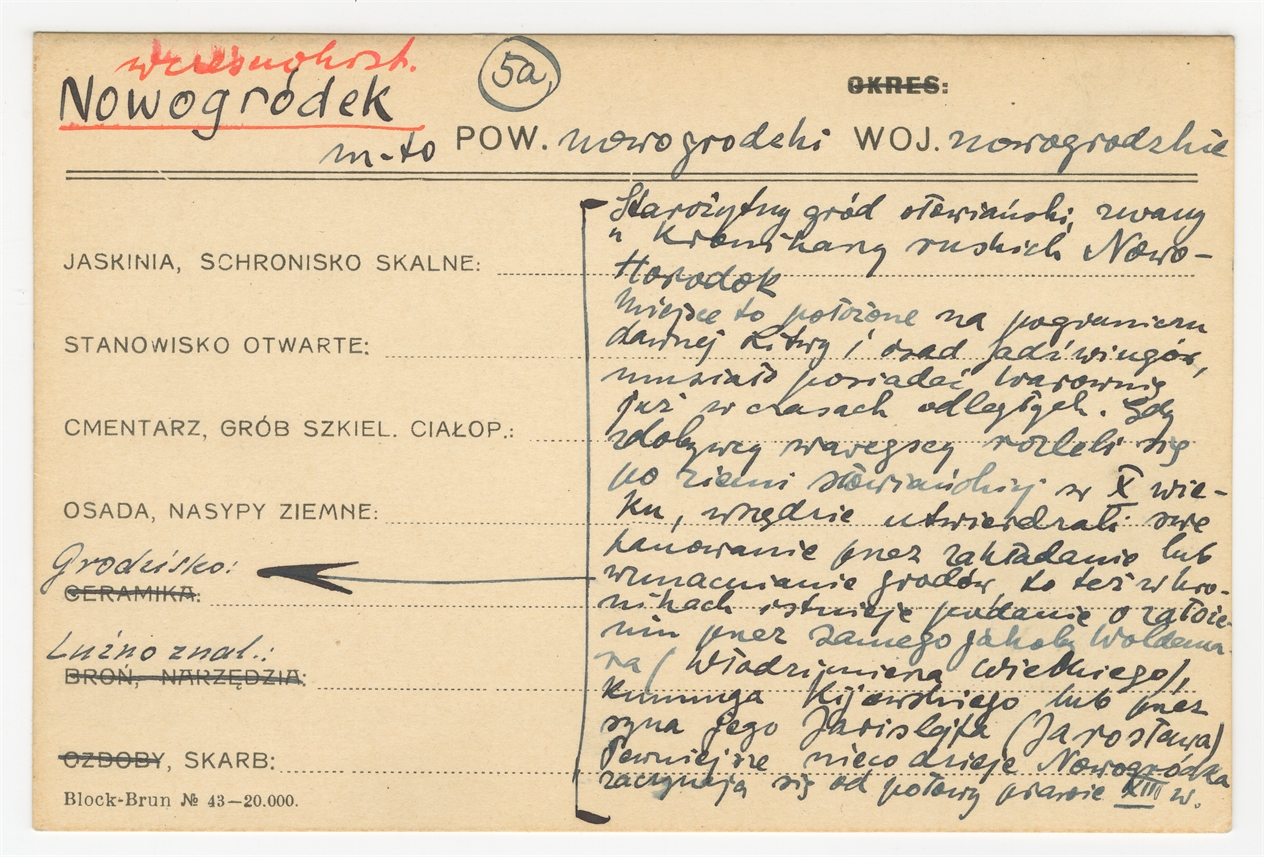 wczesnohist.
Nowogródek
5a,
OKRES:
m-to POW. nowogrodzki WOJ. nowogrodzkie
JASKINIA, SCHRONISKO SKALNE:
STANOWISKO OTWARTE:
CMENTARZ, GRÓB SZKIEL. CIAŁOP.:
OSADA, NASYPY ZIEMNE:
Grodzisko:
CERAMIKA:
Luźno znal.:
BROŃ, NARZĘDZIA:
OZDOBY, SKARB:
Block-Brun № 43—20.000.
Starożytny gród słowiański, zwany
u Kronikarzy ruskich Nowo-
Horodok
Miejsce to położone na pograniczu
dawnej Litwy i osad Jadźwingów,
musiało posiadać warownię
już w czasach odległych. Gdy
zdobywcy waregscy rozleli się
po ziemi słowiańskiej w X wie-
ku, wszędzie utwierdzali swe
panowanie przez zakładanie lub
wzmacnianie grodów, to też w kro-
nikach istnieje podanie o założe-
niu przez samego jakoby Woldema-
ra (Włodzimierza Wielkiego),
Kununga Kijowskiego lub przez
syna jego Jarislejfa (Jarosława)
Pewniejsze nieco dzieje Nowogródka
zaczynają się od połowy prawie XIII w.